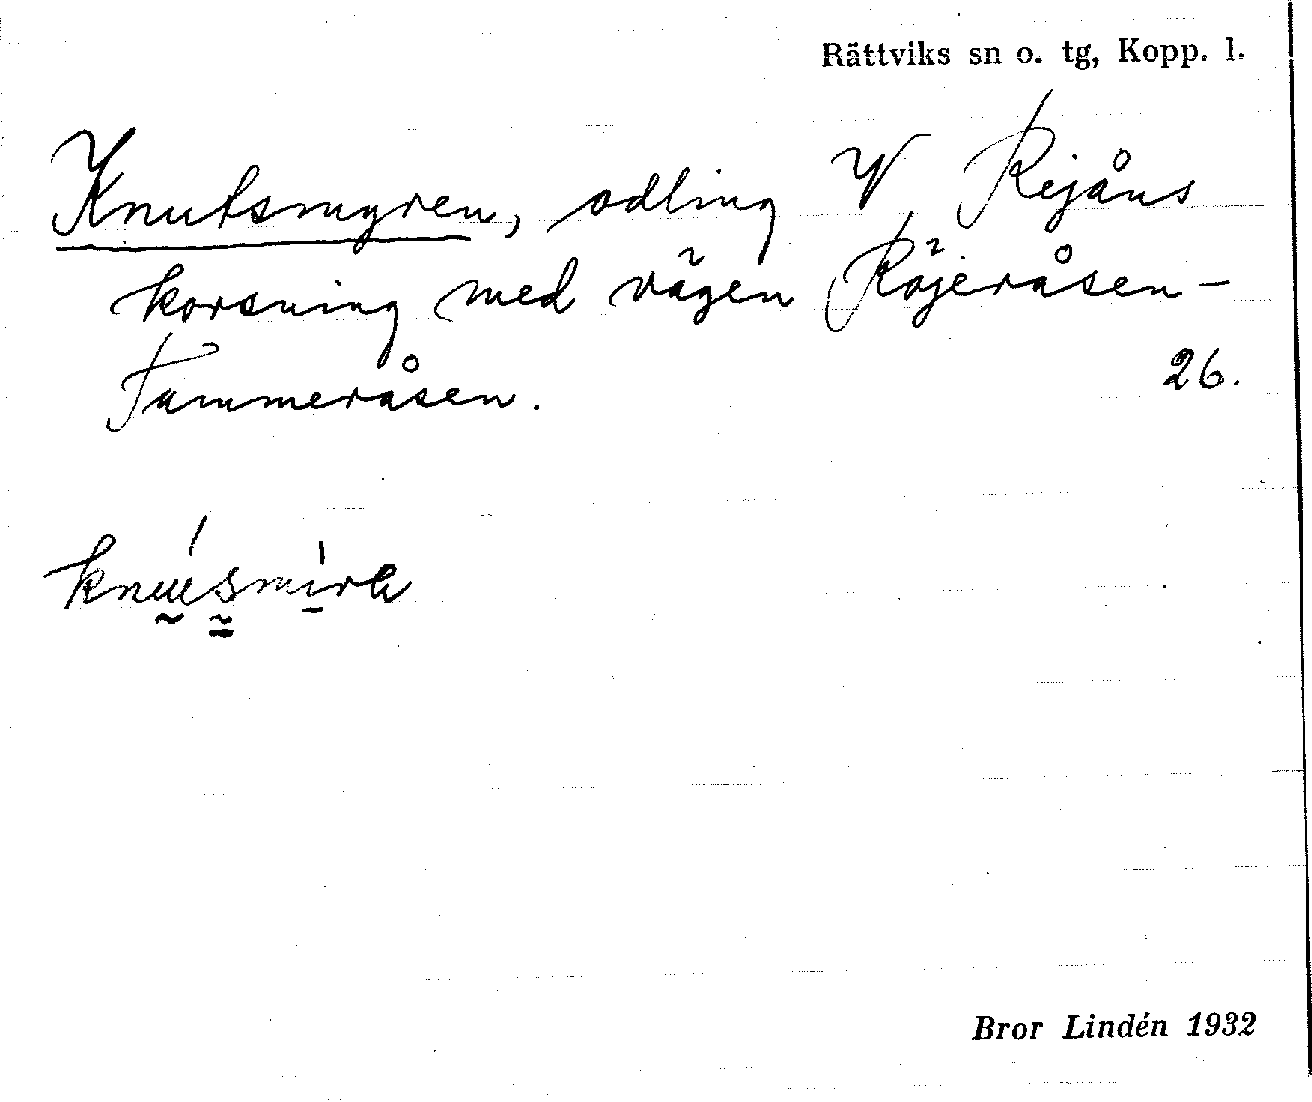 Rättviks sn o. tg, Kopp. l.
Knutsmyren, odling V, Rejåns
korsning med vägen Röjeråsen–
Tammeråsen.
26.
Bror Lindén 1932